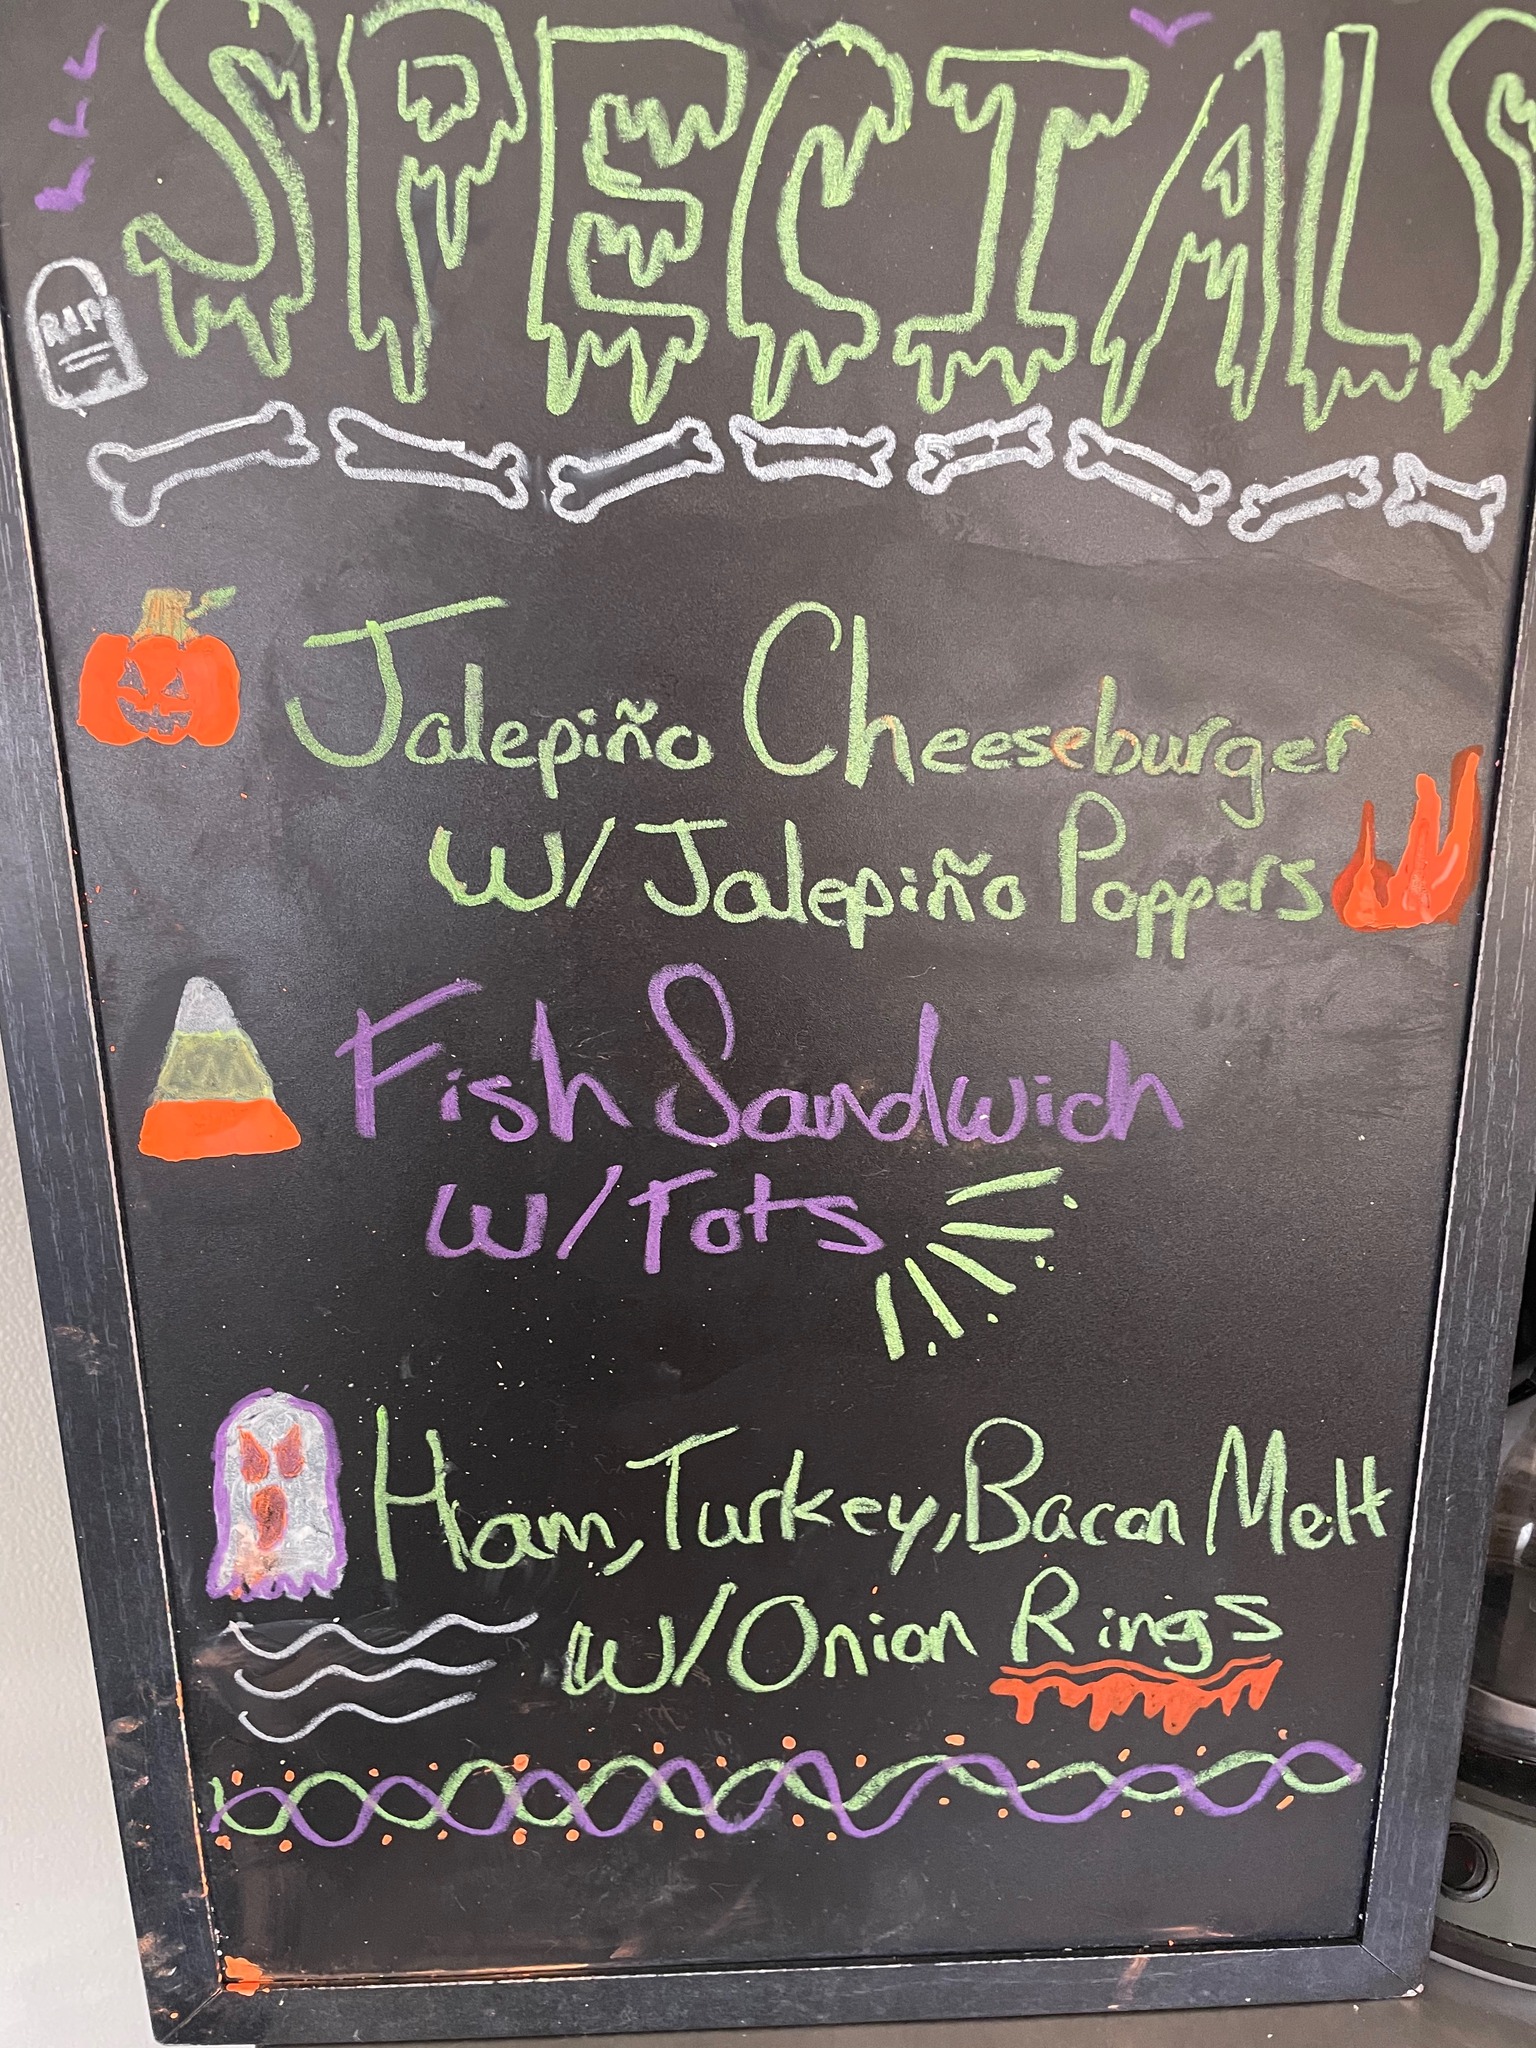 SPECIALS
RIP
Jalepiño Cheeseburger
W/ Jalepiño Poppers
Fish Sandwich
W/ Tots
Ham, Turkey, Bacon Melt
W/ Onion Rings